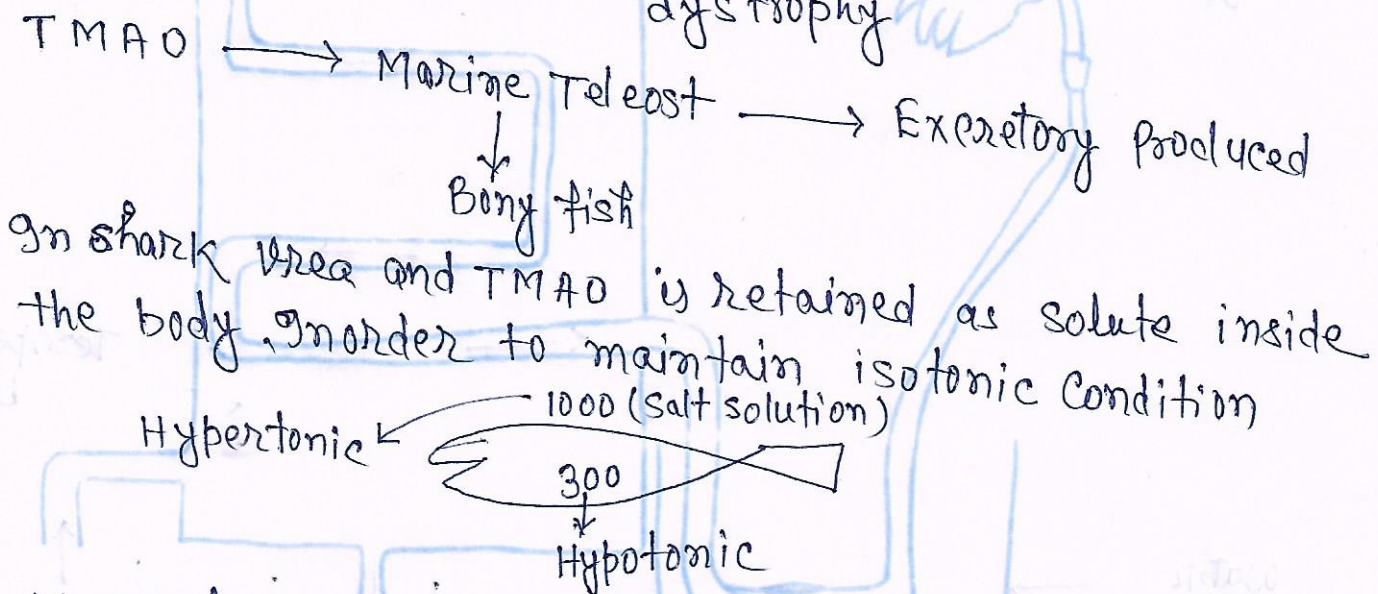 dystrophy
TMAO → Marine Teleost → Excretory Produced
↓
Bony fish
In shark Urea and TMAO is retained as solute inside
the body. Inorder to maintain isotonic Condition
1000 (Salt solution)
Hypertonic
300
↓
Hypotonic